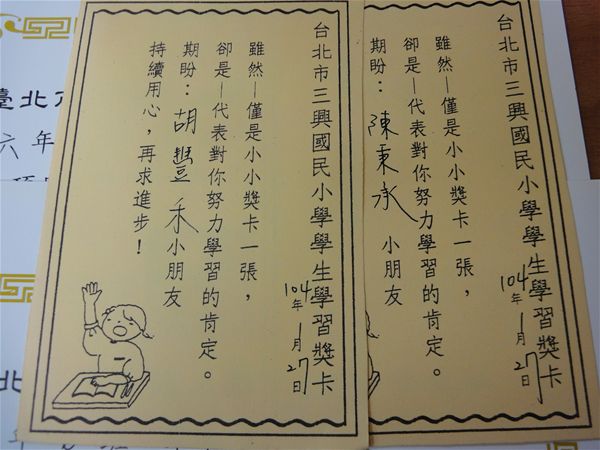 台北市三興國民小學學生學習獎卡
雖然—僅是小小獎卡一張，
卻是—代表對你努力學習的肯定。
期盼：陳秉承 小朋友
104年1月27日
台北市三興國民小學學生學習獎卡
雖然—僅是小小獎卡一張，
卻是—代表對你努力學習的肯定。
期盼：胡禾小朋友
持續用心，再求進步！
104年1月27日
臺北
六年
北